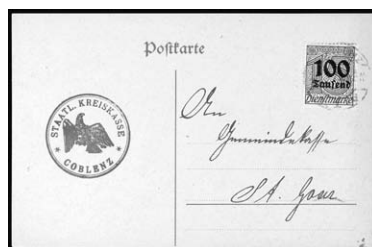 Postkarte
100
Tausend
Dienstmarke
STAATL. KREISKASSE
* COBLENZ *
An
Gemeindekasse
St. Goar